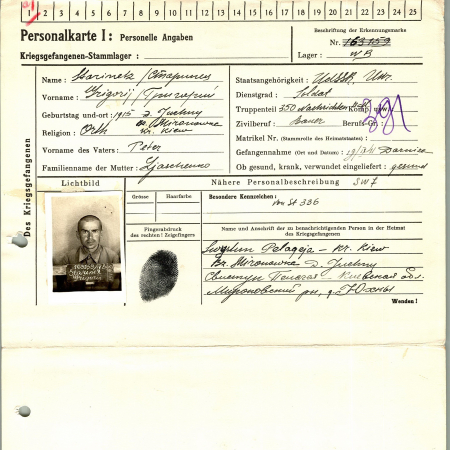 1 2 3 4 5 6 7 8 9 10 11 12 13 14 15 16 17 18 19 20 21 22 23 24 25
Personalkarte I: Personelle Angaben
Kriegsgefangenen-Stammlager:
Beschriftung der Erkennungsmarke
Nr. 163159
Lager: VI B
Des Kriegsgefangenen
Name:
Vorname: Grigorij / Григорий
Geburtstag und -ort: 1915 D. Juchny
Kr. Mironowka
Religion: Orth. Kr. Kiew
Vorname des Vaters: Peter
Familienname der Mutter:
Staatsangehörigkeit: UdSSR, Ukr.
Dienstgrad: Soldat
Truppenteil: 550 Nachrichten Komp. usw.:
Zivilberuf: Bauer Berufs-Gr.:
Matrikel Nr. (Stammrolle des Heimatstaates):
Gefangennahme (Ort und Datum):
Ob gesund, krank, verwundet eingeliefert: gesund
Lichtbild
Nähere Personalbeschreibung
Grösse
Haarfarbe
Besondere Kennzeichen:
336
Fingerabdruck
des rechten! Zeigefingers
Name und Anschrift der zu benachrichtigenden Person in der Heimat
des Kriegsgefangenen
Pelageja - Kr. Kiew
Kr. Mironowka D. Juchny
Киевская обл.
Мироновский рн, д. Юхны
Wenden!